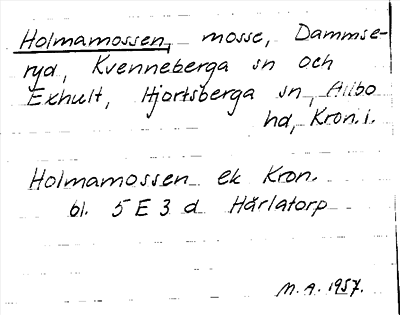 Holmamossen, mosse, Dammse-
ryd, Kvenneberga sn och
Exhult, Hjortsberga sn, Allbo
hd, Kron.l.
Holmamossen ek Kron.
bl. 5 E 3 d Härlatorp
M. A. 1957.